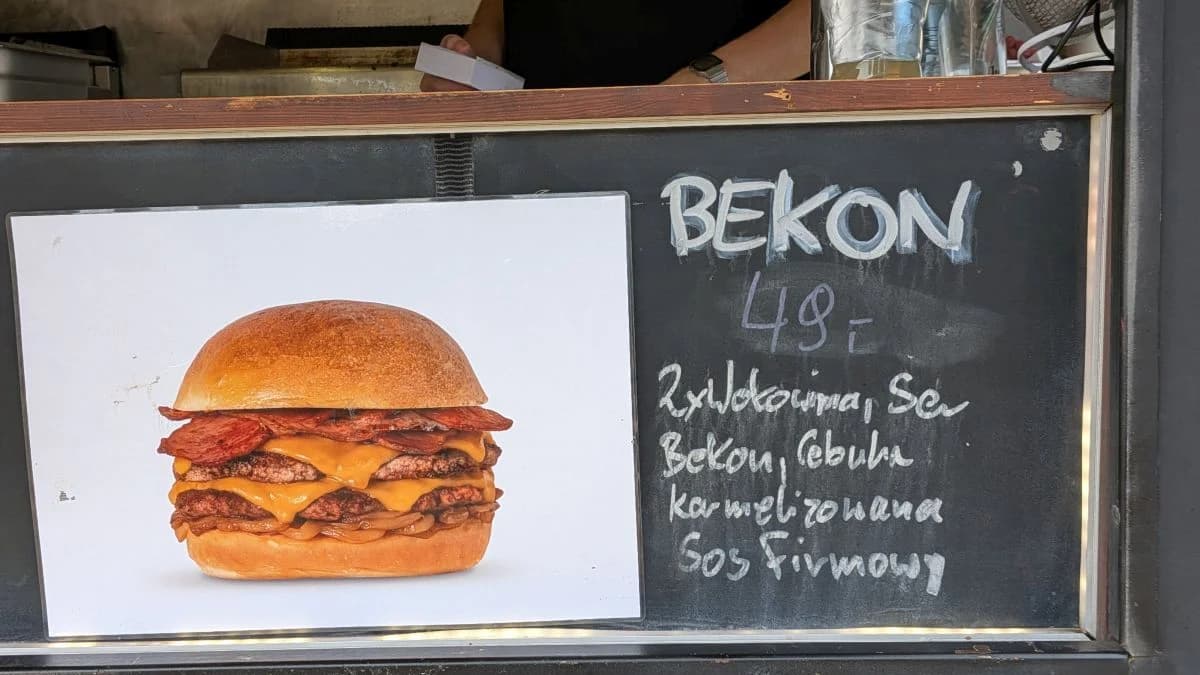 BEKON
49,-
2xWołowina, Ser
Bekon, Cebula
karmelizowana
Sos Firmowy